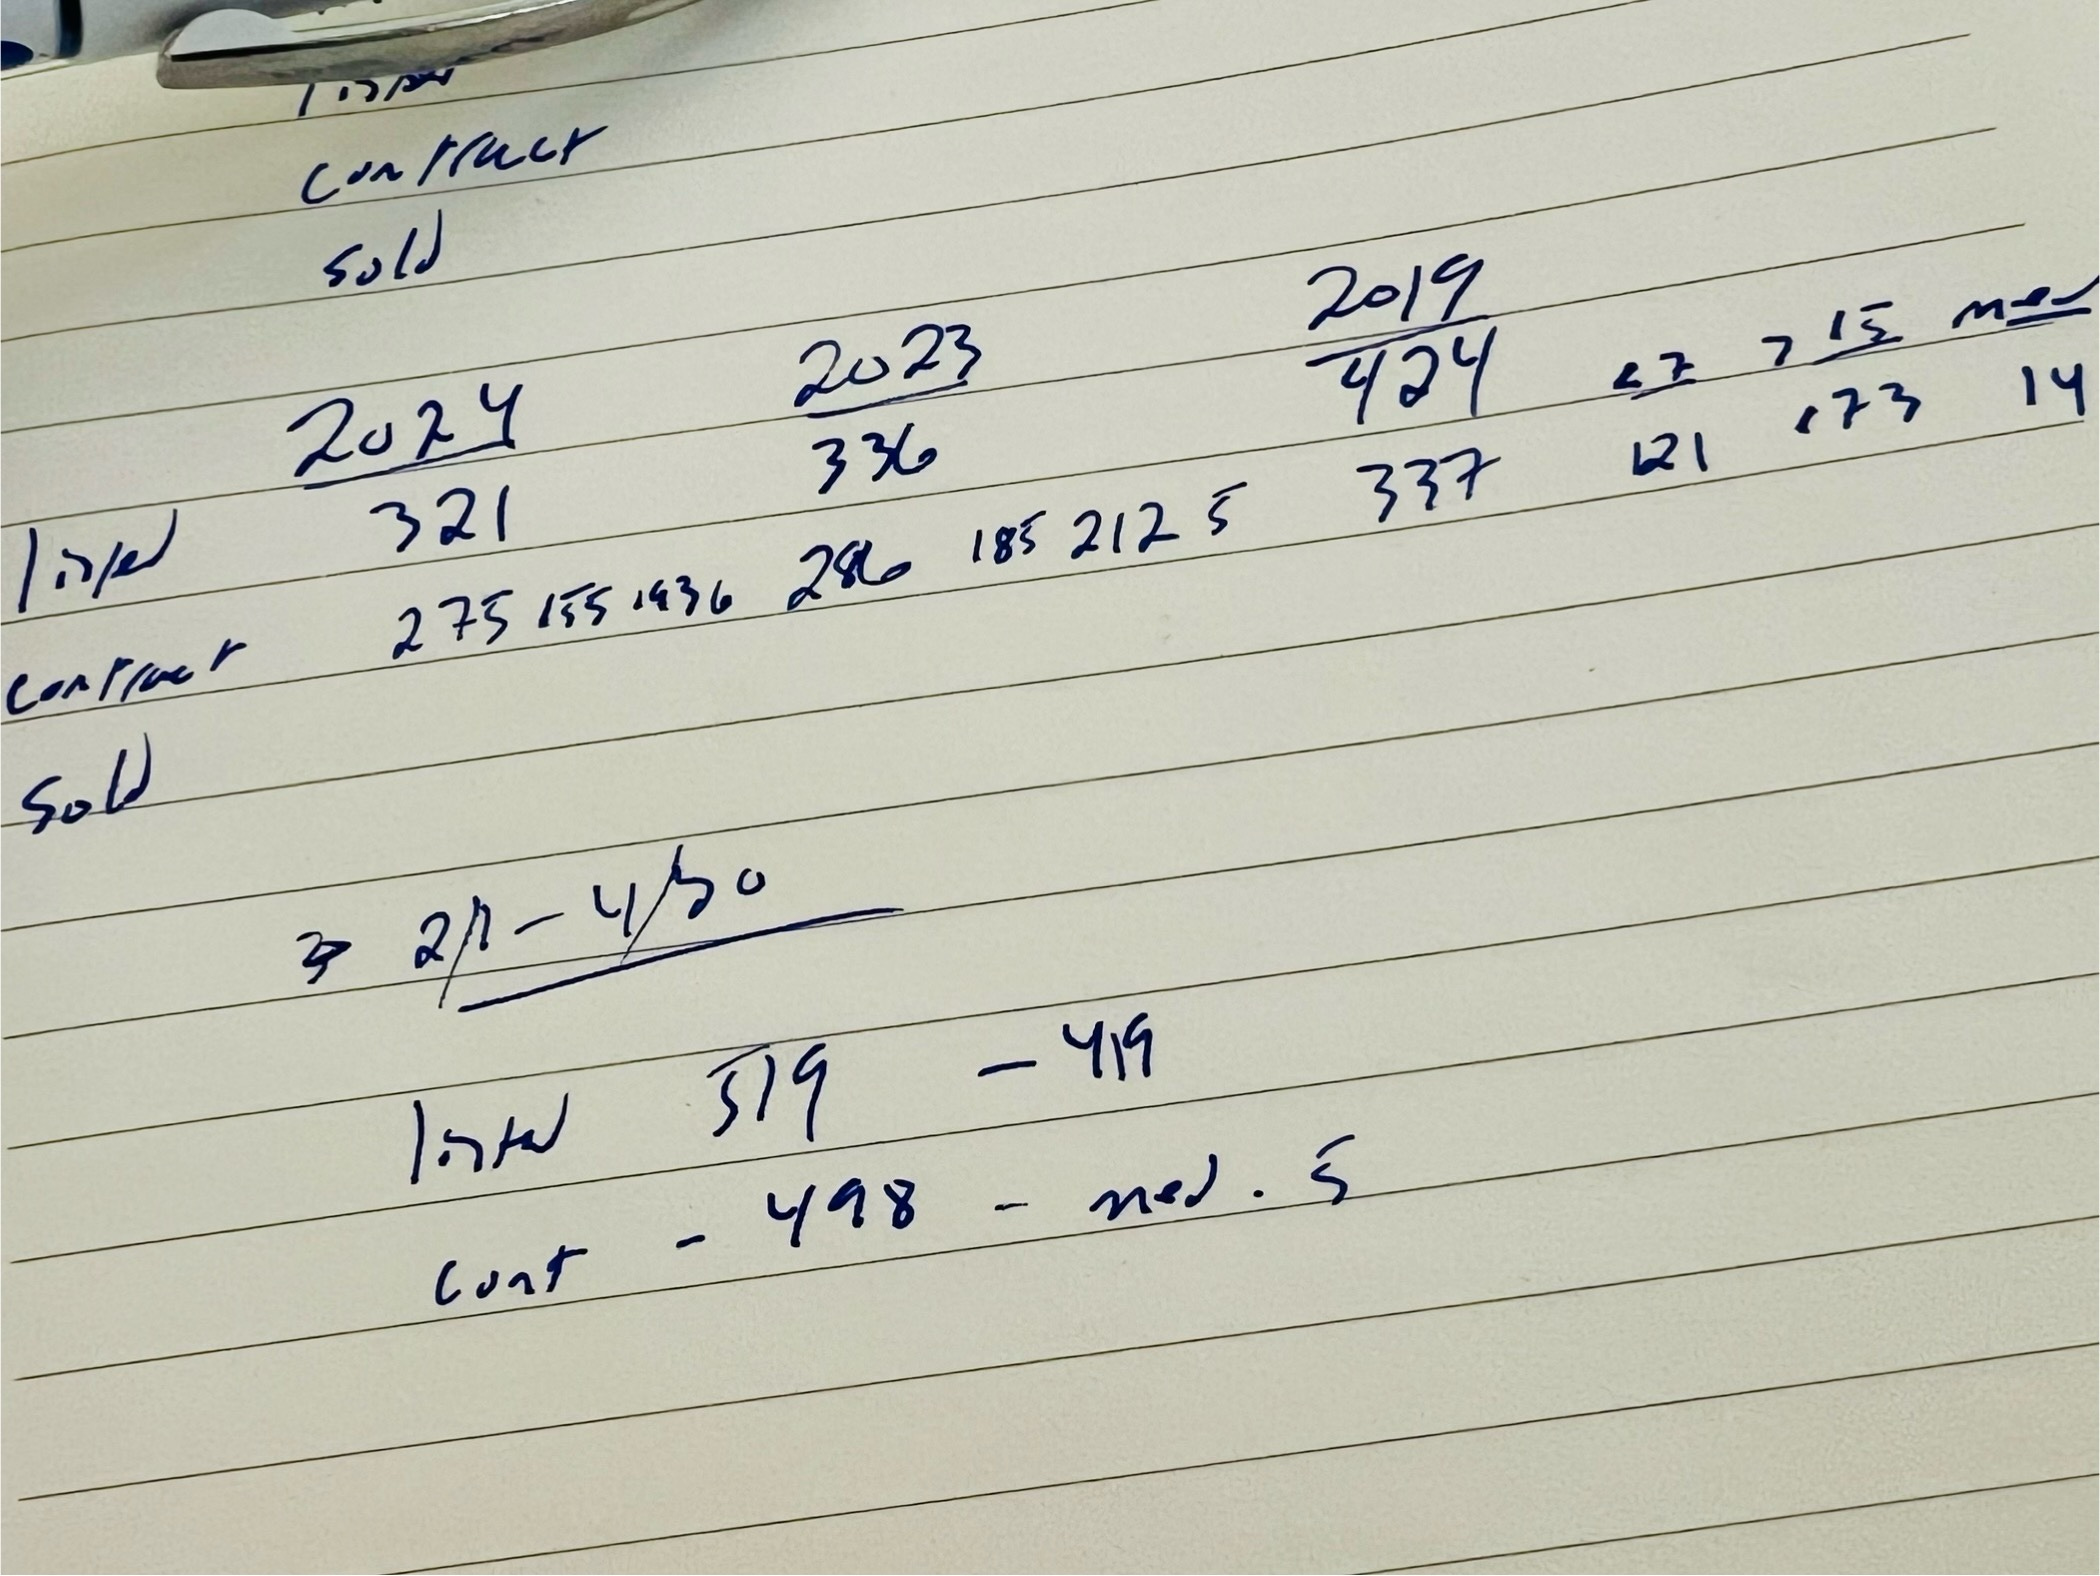 listed
contract
sold
2024 2023 2019 <7 >15 med
listed 321 336 424
contract 275 155 193 6 286 185 212 5 337 121 173 14
sold
→ 2/1 - 4/30
listed 519 - 419
cont - 498 - med. 5